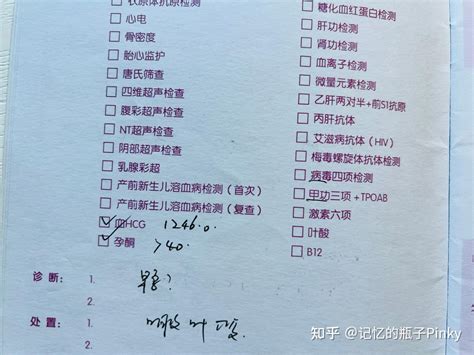 衣原体抗原检测
□ 心电
□ 骨密度
□ 胎心监护
□ 唐氏筛查
□ 四维超声检查
□ 腹彩超声检查
□ NT超声检查
□ 阴部超声检查
□ 乳腺彩超
□ 产前新生儿溶血病检测（首次）
□ 产前新生儿溶血病检测（复查）
☑ 血HCG 1246.0
☑ 孕酮 >40.
□ 糖化血红蛋白检测
□ 肝功检测
□ 肾功检测
□ 血离子检测
□ 微量元素检测
□ 乙肝两对半+前S1抗原
□ 丙肝抗体
□ 艾滋病抗体（HIV）
□ 梅毒螺旋体抗体检测
□ 病毒四项检测
□ 甲功三项+TPOAB
□ 激素六项
□ 叶酸
□ B12
诊断： 1. 早孕?
2.
处置： 1.
2.
知乎 @记忆的瓶子Pinky